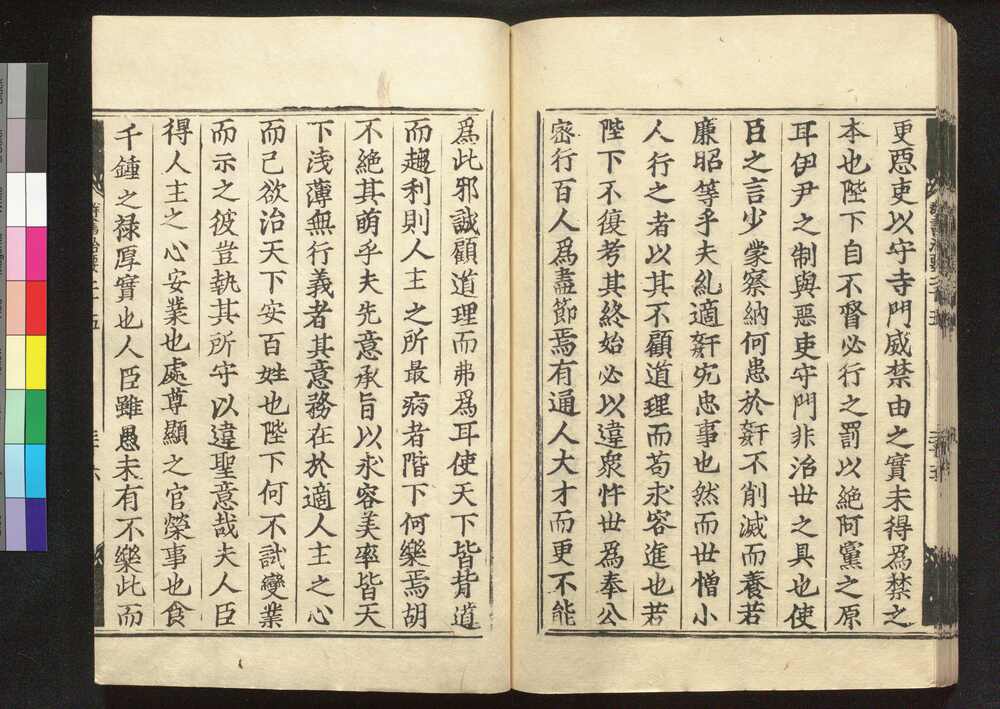 更惡吏以守寺門威禁由之實未得爲禁之
本也陛下自不督必行之罰以絶阿黨之原
耳伊尹之制與惡吏守門非治世之具也使
臣之言少蒙察納何患於姧不削滅而養若
廉昭等乎夫糺適姧宄忠事也然而世憎小
人行之者以其不顧道理而苟求容進也若
陛下不復考其終始必以違衆忤世爲奉公
宻行百人爲盡節焉有通人大才而更不能
爲此邪誠顧道理而弗爲耳使天下皆背道
而趨利則人主之所最病者階下何樂焉胡
不絶其萌乎夫先意承旨以求容美率皆天
下浅薄無行義者其意務在於適人主之心
而已欲治天下安百姓也陛下何不試變業
而示之彼豈執其所守以違聖意哉夫人臣
得人主之心安業也處尊顯之官榮事也食
千鍾之禄厚實也人臣雖愚未有不樂此而